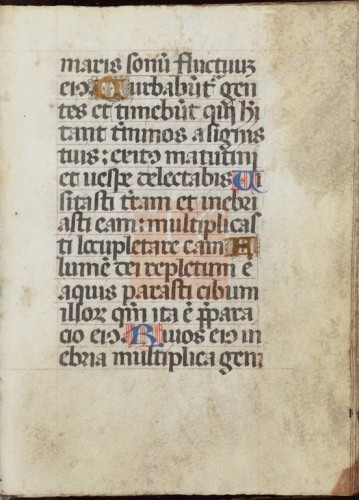 maris sonū fluctuuz
eiꝰ. Turbabūt᷑ gen
tes et timebūt qui hı
tant t̄minos a signis
tuis: exitꝰ matutini
et uesꝑe delectabis Ui
sitasti t̄ram et inebri
asti eam: multiplicas
ti locupletare eam F
lumē dei repletum ē
aquis parasti cibum
illoꝝ qm̄ ita ē p̄para
cio eiꝰ. Riuos eiꝰ in
ebria multiplica gem